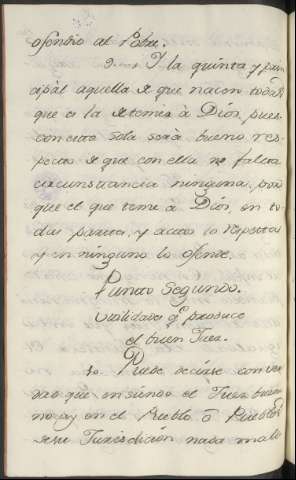 ofendio al Pobre.
9. Y la quinta y prin
cipàl aquella de que nacen todas
que es la de temer à Dios, pues
con esta sola serà bueno, res-
pecto de que con ella no faltarà
circunstancia ninguna, por
que el que teme à Dios, en to-
das partes, y actos lo respeta
y en ninguno lo ofende.
Punto Segundo.
Utilidades qe. produce
el buen Juez.
10. Puede decirse con ver
dad que siendo el Juez bueno
no ay en el Pueblo ô Pueblos
de su Jurisdiccion nada malo